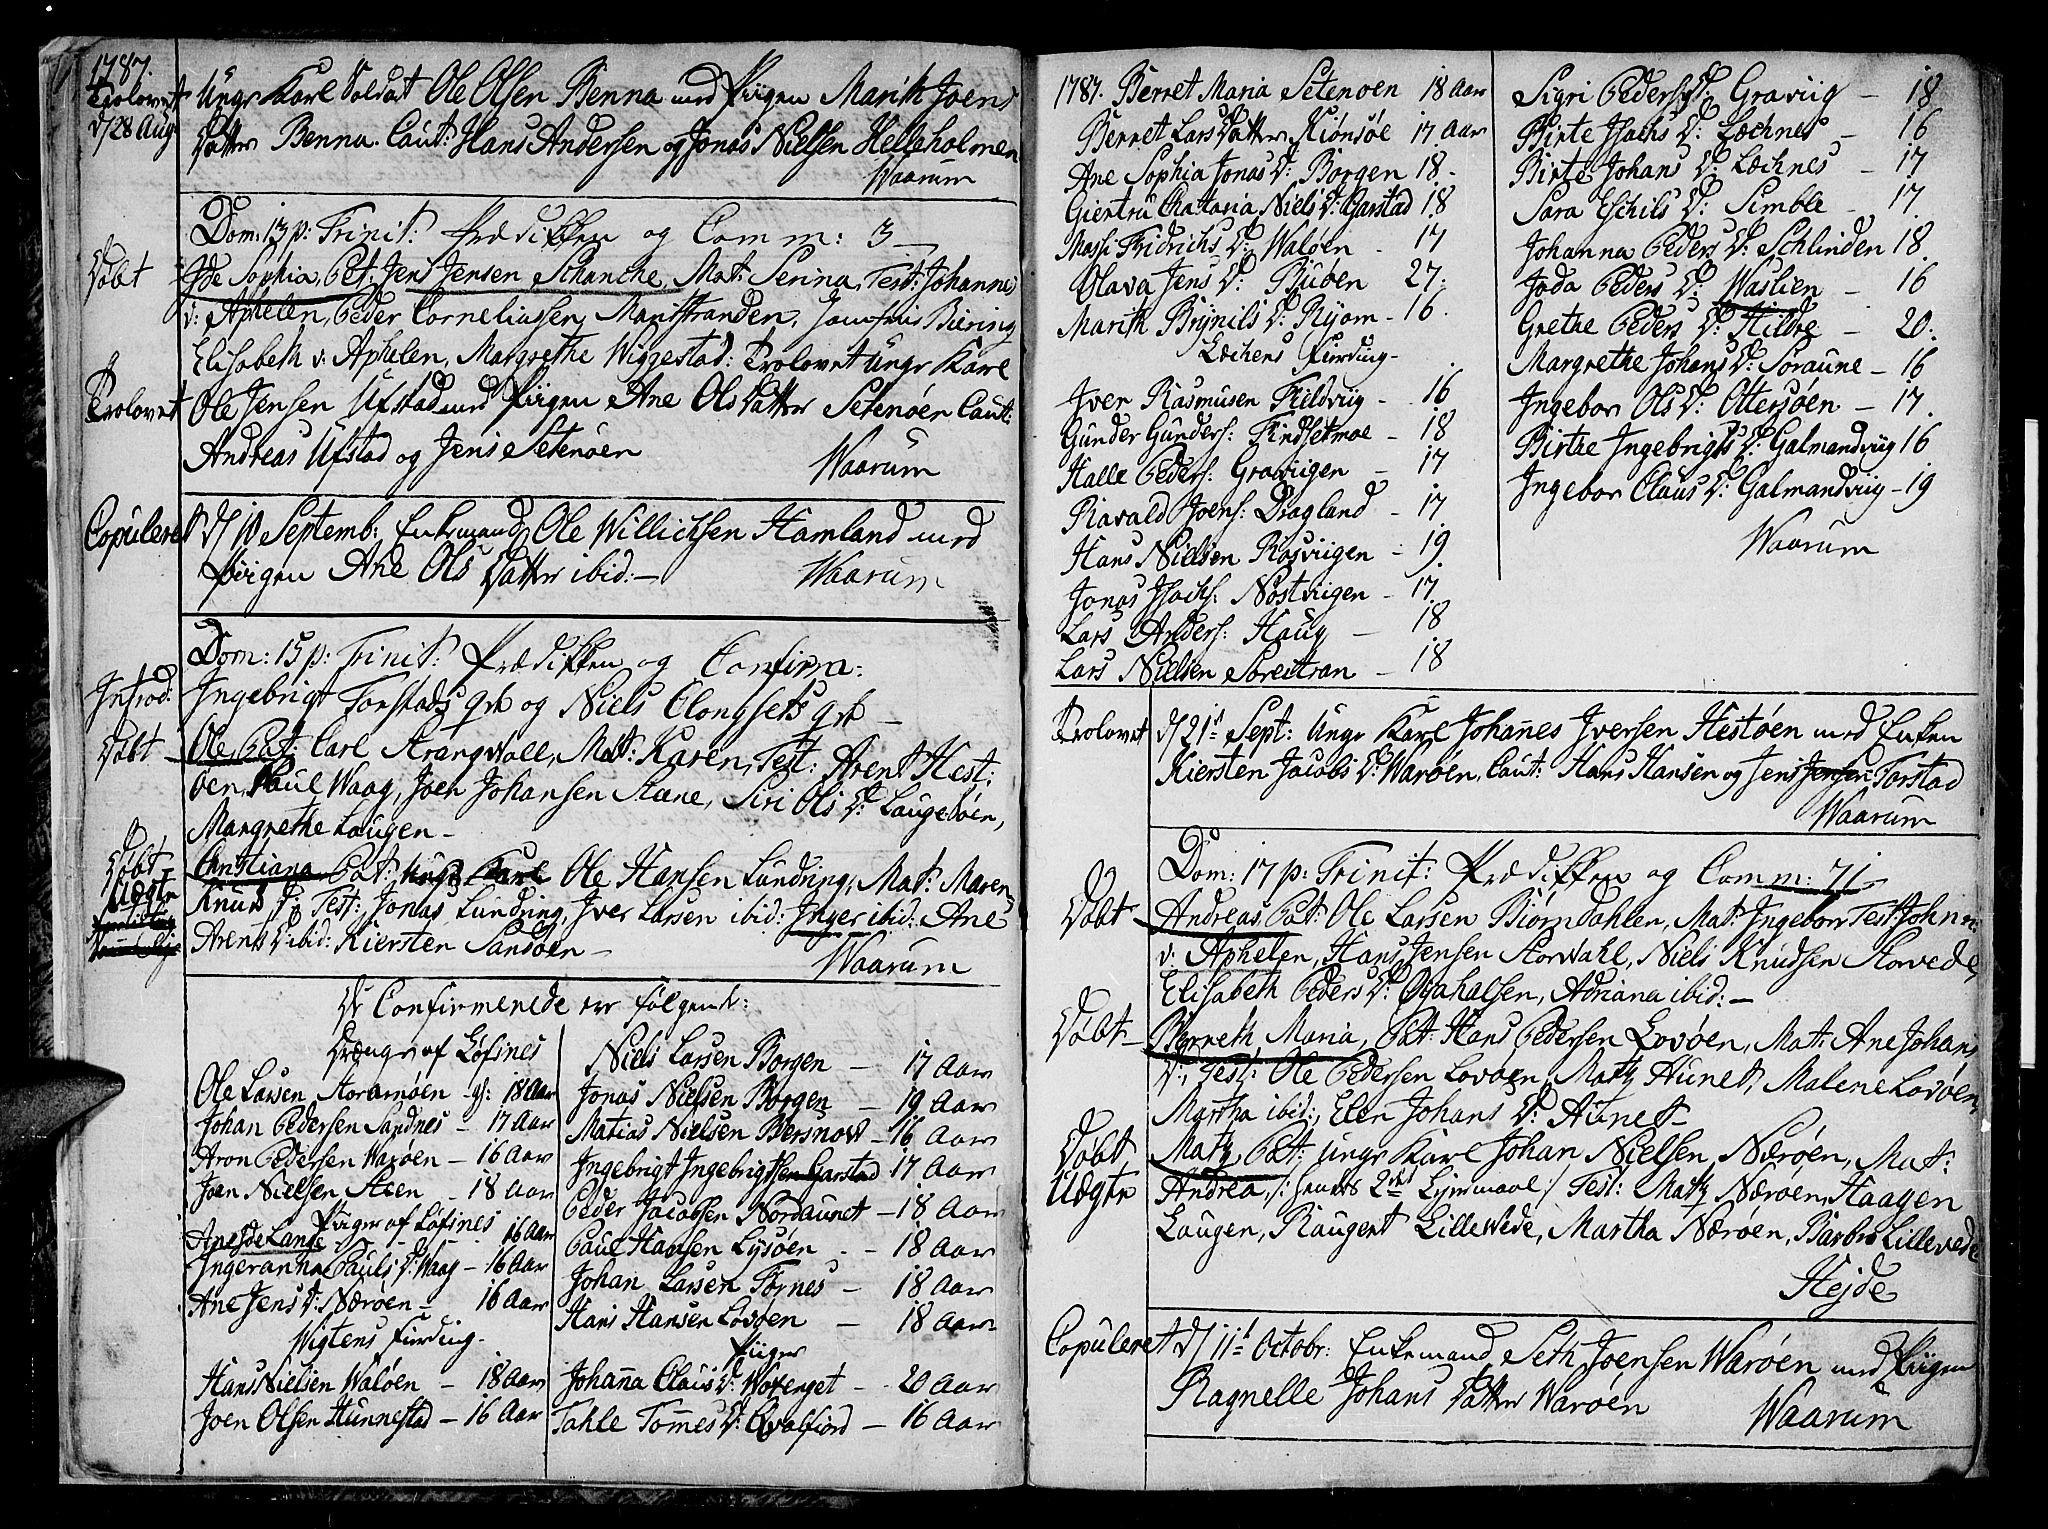 1787.
Trolovet Ungr Karl Soldat Ole Olsen Benna med Piigen Marith Joens
d/28 Aug: Datter Benna. Caut: Hans Andersen og Jonas Nielsen Helleholmen
Waarum
Dom: 13 p: Trinit: Prædikken og Comm: 3
Døbt Ide Sophia, Pat. Jens Jensen Schanche, Mat: Serina, Test: Johannes
v: Aphelen, Peder Corneliussen, Biering
Elisabeth v: Aphelen, Margrethe Wiggestad: Trolovet Ungr Karl
Trolovet Ole Jensen Ufstad med Piigen Ane Ols Datter Setenøen Caut:
Andreas Ufstad og Jens Setenøen
Waarum
Copuleret d/10 Septemb: Enkemand Ole Willichsen Hamland med
Piigen Ane Ols Datter ibid:
Waarum
Dom: 15 p: Trinit: Prædikken og Confirm:
Introd: Ingebrigt Forstads qvi og Niels Olongsets qvi
Døbt Ole, Pat: Carl Strangwoll, Mat: Karen, Test: Arent Hest:
øen, Paul Waag, Joen Johansen Stene, Siri Ols D: Laugeøen,
Margrethe Laugen
Døbt Christiana Pat: Ungr Karl Ole Hansen Lundring, Mat: Maren
Uægte Knuds D: Test: Jonas Lundring, Iver Larsen ibid: Inger ibid: Ane
Arents D: ibid: Kiersten Sandøen
Waarum
De Confirmerede ere følgende:
Drænge af Løfines
Ole Larsen Storamøen - 18 Aar
Johan Pedersen Sandnes - 17 Aar
Aron Pedersen Warøen - 16 Aar
Joen Nielsen Steen - 18 Aar
Piiger af Løfines
Ane Jde Lange 16 Aar
Ingeranna Pauls D: Waag - 16 Aar
Ane Jens D: Nærøen - 16 Aar
Wigtens Fierding
Hans Nielsen Waløen - 18 Aar
Joen Olsen Hunnestad - 16 Aar
Niels Larsen Borgen - 17 Aar
Jonas Nielsen Borgen - 19 Aar
Matias Nielsen Bersnow - 16 Aar
Ingebrigt Ingebrigtsen Garstad 17 Aar
Peder Jacobsen Nordaunet - 18 Aar
Paul Hansen Lysøen - 18 Aar
Johan Larsen Fornes - 18 Aar
Hans Hansen Lovøen - 18 Aar
Piiger
Johanna Claus D: Woxenget - 20 Aar
Tahle Tommes D: Qvalfiord - 16 Aar
1787. Berret Maria Setenøen 18 Aar
Berret Lars Datter Kiønsøe 17 Aar
Ane Sophia Jonas D: Borgen 18
Giertru Chataria Niels D: Garstad 18
Massi Fridrichs D: Waløen - 17
Olava Jens D: Buøen 27.
Marith Brynils D: Ryom - 16.
Lechens Fierding
Iver Rasmusen Fieldviig - 16
Gunder Gunders: Findsetmoe - 18
Halle Peders: Graviigen - 17
Ravald Joens: Dragland - 17
Hans Nielsen Rosviigen - 19.
Jonas Isachs: Nostviigen - 17.
Lars Anders: Haug - 18
Lars Nielsen Soreitran - 18
Sigri Peders D: Graviig - 18
Birte Isachs D: Lechnes - 16
Birte Johans D: Lechnes - 17
Sara Eschils D: Simble - 17.
Johanna Peders D: Schlinden 18.
Joda Peders D: Waslien - 16
Grethe Peders D: Hildre - 20.
Margrethe Johans D: Søraune - 16
Ingebor Ols D: Ottersøen - 17.
Birtæ Ingebrigts D: Galmandviig 16
Ingebor Claus D: Galmandviig - 19
Waarum
Trolovet d/21 Sept: Ungr Karl Johannes Iversen Hestøen med Enken
Kiersten Jacobs D: Warøen, Caut: Hans Hansen og Jens Jensen Forstad
Waarum
Dom: 17 p: Trinit: Prædikken og Comm: 71
Døbt Andreas, Pat: Ole Larsen Biørndahlen, Mat: Ingebor, Test: Johan
v: Aphelen, Hans Jensen Storwahl, Niels Knudsen Storvede,
Elisabeth Peders D: Ogahalsen, Adriana ibid:
Døbt Berreth Maria, Pat: Hans Pedersen Lovøen, Mat: Ane Johans
D:, Test: Ole Pedersen Lovøen, Matz Aunet, Malene Lovøen,
Martha ibid:, Elen Johans D: Aunet
Døbt Matz Pat: Ungr Karl Johan Nielsen Nærøen, Mat:
Uægte Andrea, /: hendes 2det Leyermaal :/ Test: Matz Nærøen, Haagen
Laugen, Raugert Lillewede, Martha Nærøen, Barbro Lillevede
Hejde
Copuleret d/11t Octobr: Enkemand Seth Joensen Warøen med Piigen
Ragnelle Johans Datter Warøen
Waarum